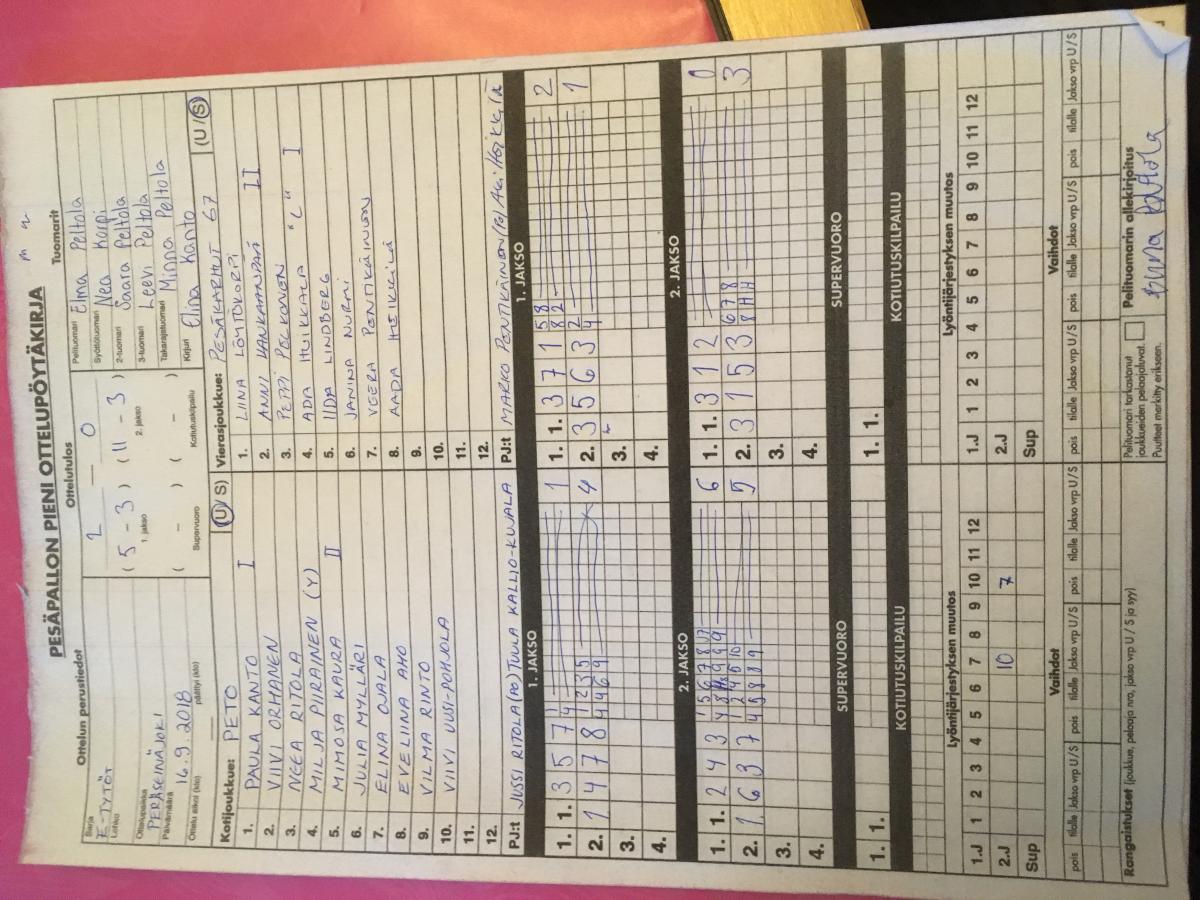 PESÄPALLON PIENI OTTELUPÖYTÄKIRJA
Ottelun perustiedot
Ottelutulos
Tuomarit
Sarja
E-TYTÖT
Lohko
Ottelupaikka
PERÄSEINÄJOKI
Päivämäärä 16.9.2018
Ottelu alkoi (klo) päättyi (klo)
2 — 0
( 5 - 3 ) ( 11 - 3 )
1. jakso 2. jakso
( - ) ( - )
Supervuoro Kotiutuskilpailu
Pelituomari Elma Peltola
Syöttötuomari Nea Korpi
2-tuomari Saara Peltola
3-tuomari Leevi Peltola
Takarajatuomari Minna Peltola
Kirjuri Elina Kanto
Kotijoukkue: PETO (U/S)
1. PAULA KANTO I
2. VIIVI ORHANEN
3. NEEA RITOLA
4. MILJA PIIRAINEN (Y)
5. MIMOSA KAURA II
6. JULIA MYLLÄRI
7. ELINA OJALA
8. EVELIINA AHO
9. VILMA RINTO
10. VIIVI UUSI-POHJOLA
11.
12.
PJ:t JUSSI RITOLA (PO) TUULA KALLIO-KUJALA
Vierasjoukkue: PESÄKARHUT 67 (U/S)
1. LIINA LÖYTÖKORPI II
2. ANNI VANHANPÄÄ
3. PEPPI PEKKONEN I
4. ADA HUIKKALA "L"
5. IIDA LINDBERG
6. JANINA NURMI
7. VEERA PENTIKÄINEN
8. AADA HEIKKILÄ
9.
10.
11.
12.
PJ:t MARKO PENTIKÄINEN
1. JAKSO
1. 1. 3 5 7 1
2. 1 4 7 8 4
3.
4.
1. JAKSO
1. 1. 3 7 1 2
2. 3 5 6 3 1
3.
4.
2. JAKSO
1. 1. 2 4 3 6
2. 1 6 3 7 5
3.
4.
2. JAKSO
1. 1. 3 1 2 0
2. 3 1 5 3 3
3.
4.
SUPERVUORO
1. 1.
SUPERVUORO
1. 1.
KOTIUTUSKILPAILU
KOTIUTUSKILPAILU
Lyöntijärjestyksen muutos
1.J 1 2 3 4 5 6 7 8 9 10 11 12
2.J 10 7
Sup
Lyöntijärjestyksen muutos
1.J 1 2 3 4 5 6 7 8 9 10 11 12
2.J
Sup
Vaihdot
pois tilalle Jakso vrp U/S pois tilalle Jakso vrp U/S pois tilalle Jakso vrp U/S
Vaihdot
pois tilalle Jakso vrp U/S pois tilalle Jakso vrp U/S pois tilalle Jakso vrp U/S
Rangaistukset (joukkue, pelaaja nro, jakso vrp U / S ja syy)
Pelituomari tarkastanut
joukkueiden pelaajaluvat.
Puutteet merkitty erikseen.
Pelituomarin allekirjoitus